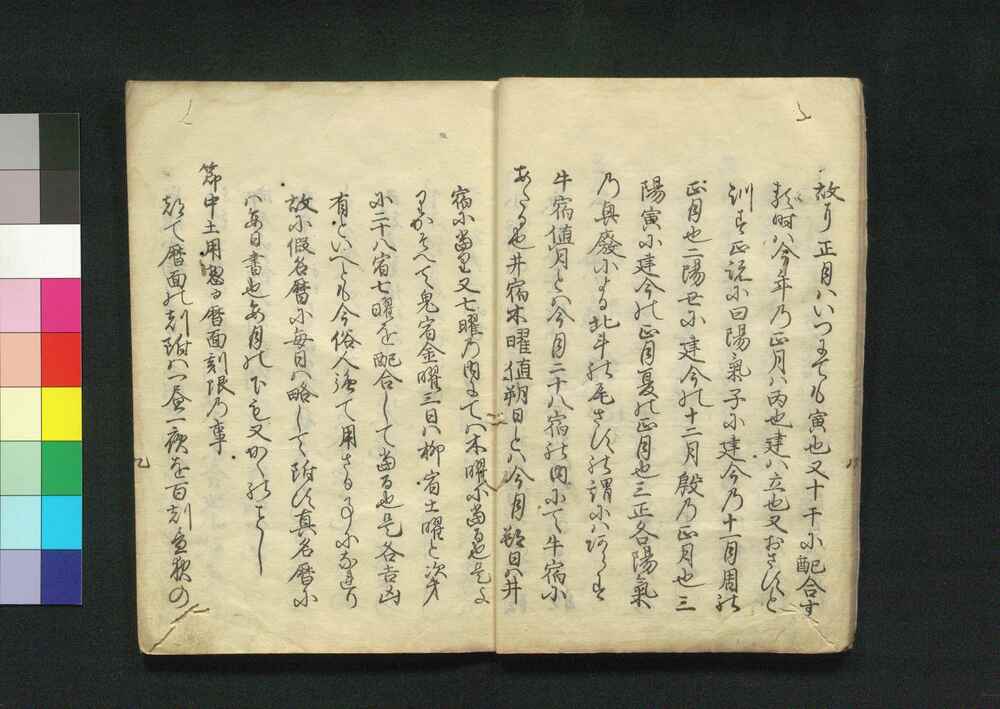 故り正月ハいつまても寅也又十干に配合す
類時ハ今年乃正月ハ丙也建ハ立也又おさすと
訓す正説に曰陽氣子に建今乃十一月周の
正月也二陽丑に建今の十二月殷乃正月也三
陽寅に建今の正月夏の正月也三正各陽氣
乃興廢による北斗の尾さすの謂にハあらす
牛宿値月とハ今月二十八宿の内にて牛宿に
あたる也井宿木曜値朔日とハ今月朔日ハ井
宿に當り又七曜乃内まてハ木曜に當る也是よ
りかそへて鬼宿金曜三日ハ柳宿土曜と次第
に二十八宿七曜を配合して當る也是各吉凶
有といへとも今俗人強て用さる事になれり
故に假名暦に毎日ハ略して附す真名暦に
ハ毎日書也毎月の下も又かくのことし
節中土用逐日暦面刻限乃事
都て暦面の刻附ハ一晝一夜を百刻